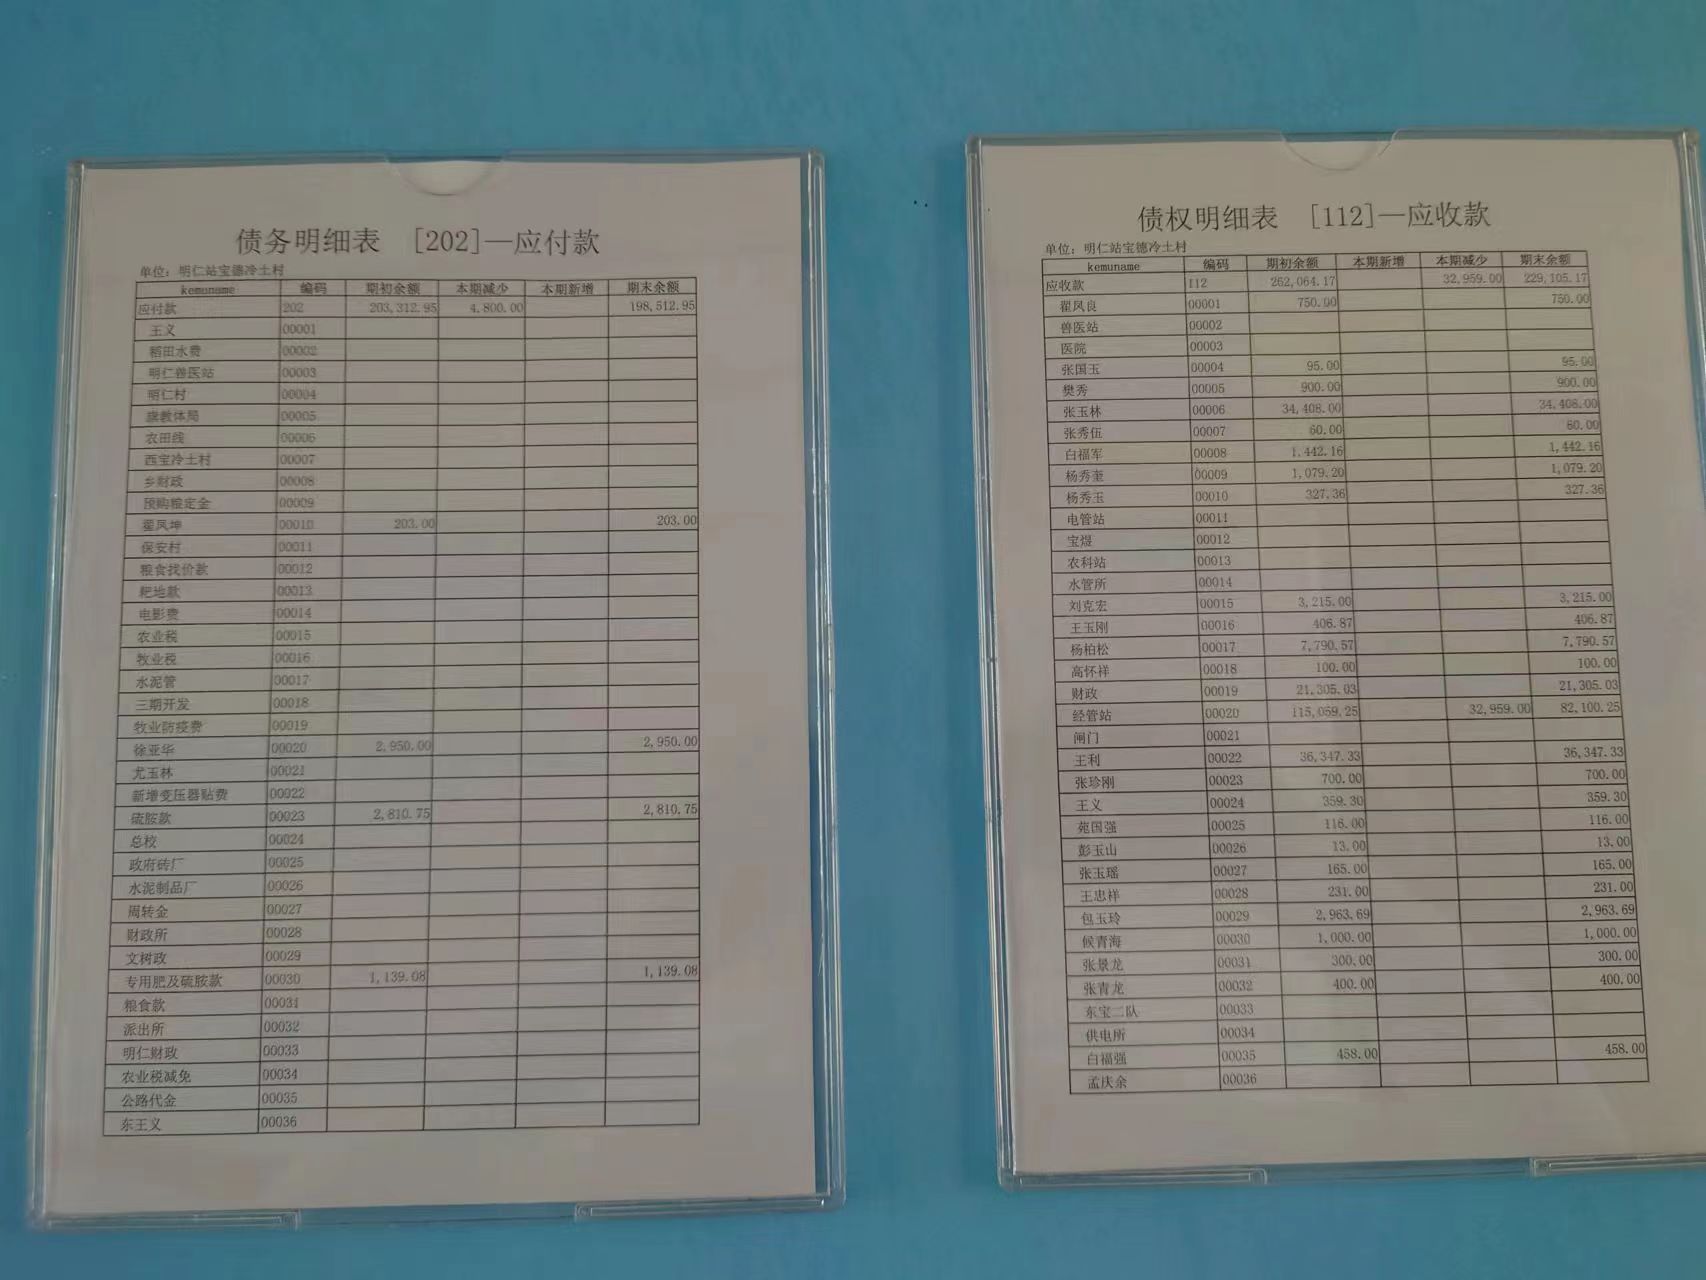 债务明细表 [202]—应付款
单位：明仁站宝德冷土村
kemuname 编码 期初余额 本期减少 本期新增 期末余额
应付款 202 203,312.95 4,800.00 198,512.95
王义 00001
稻田水费 00002
明仁兽医站 00003
明仁村 00004
旗教体局 00005
农田线 00006
西宝冷土村 00007
乡财政 00008
预购粮定金 00009
翟凤坤 00010 203.00 203.00
保安村 00011
粮食找价款 00012
耙地款 00013
电影费 00014
农业税 00015
牧业税 00016
水泥管 00017
三期开发 00018
牧业防疫费 00019
徐亚华 00020 2,950.00 2,950.00
尤玉林 00021
新增变压器贴费 00022
硫胺款 00023 2,810.75 2,810.75
总校 00024
政府砖厂 00025
水泥制品厂 00026
周转金 00027
财政所 00028
文树政 00029
专用肥及硫胺款 00030 1,139.08 1,139.08
粮食款 00031
派出所 00032
明仁财政 00033
农业税减免 00034
公路代金 00035
东王义 00036
债权明细表 [112]—应收款
单位：明仁站宝德冷土村
kemuname 编码 期初余额 本期新增 本期减少 期末余额
应收款 112 262,064.17 32,959.00 229,105.17
翟凤良 00001 750.00 750.00
兽医站 00002
医院 00003
张国玉 00004 95.00 95.00
樊秀 00005 900.00 900.00
张玉林 00006 34,408.00 34,408.00
张秀伍 00007 60.00 60.00
白福军 00008 1,442.16 1,442.16
杨秀奎 00009 1,079.20 1,079.20
杨秀玉 00010 327.36 327.36
电管站 00011
宝煜 00012
农科站 00013
水管所 00014
刘克宏 00015 3,215.00 3,215.00
王玉刚 00016 406.87 406.87
杨柏松 00017 7,790.57 7,790.57
高怀祥 00018 100.00 100.00
财政 00019 21,305.03 21,305.03
经管站 00020 115,059.25 32,959.00 82,100.25
闸门 00021
王利 00022 36,347.33 36,347.33
张珍刚 00023 700.00 700.00
王义 00024 359.30 359.30
苑国强 00025 116.00 116.00
彭玉山 00026 13.00 13.00
张玉瑶 00027 165.00 165.00
王忠祥 00028 231.00 231.00
包玉玲 00029 2,963.69 2,963.69
候青海 00030 1,000.00 1,000.00
张景龙 00031 300.00 300.00
张青龙 00032 400.00 400.00
东宝二队 00033
供电所 00034
白福强 00035 458.00 458.00
孟庆余 00036